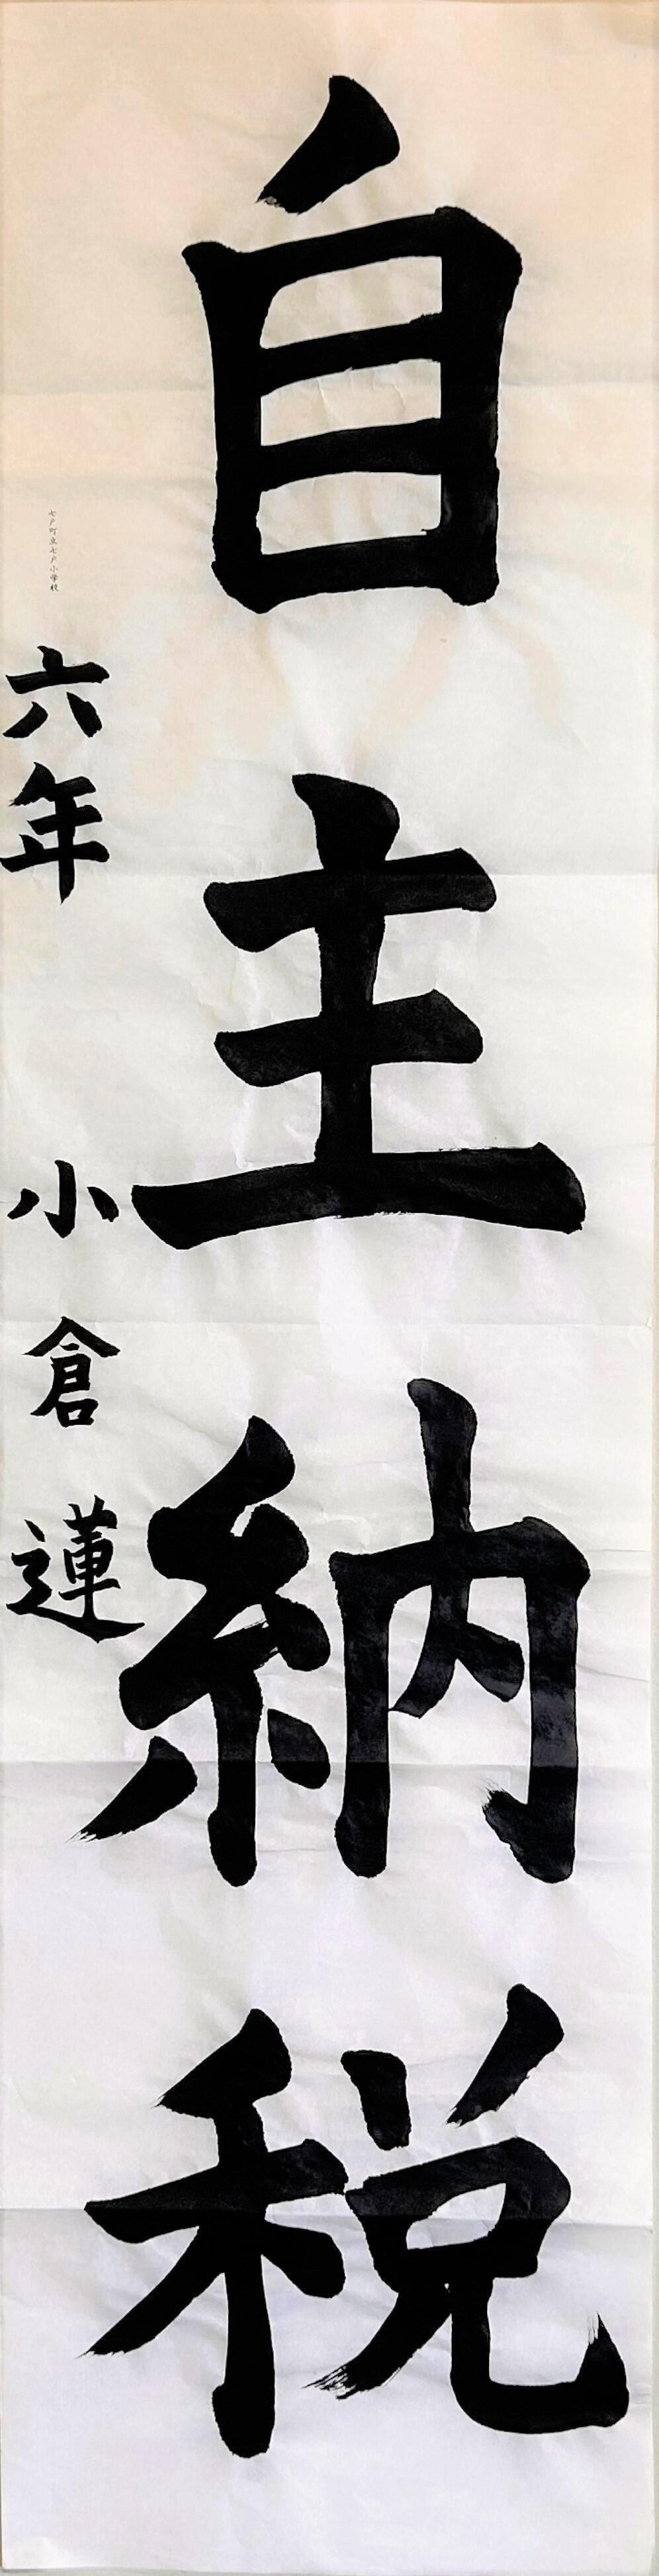 自主納税
七戸町立七戸小学校
六年 小倉蓮